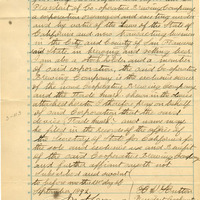 President of Co-operative Brewing Company
a corporation organized and existing under
and by virtue of the Laws of the State of
California and now transacting business
in the City and County of San Francisco
and State in brewing and selling beer
I am also a stock holder and a member
of said corporation, the said Co-operative
Brewing Company is the exclusive owner
of the name Co-operative Brewing Company
and the trade mark shown in the Label
attached hereto I therefore pray on behalf
of said Corporation that the said
device (Trade Mark) and name may
be filed in the records of the office of
the Secretary of State of California for
the sole and exclusive use and benefit of
the said Co-operative Brewing Company
and further affiant saith not
Subscribed and sworn to
before me this day of
September 189